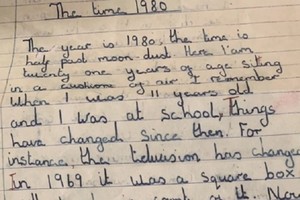 The time 1980
The year is 1980, the time is
half past moon-dust. Here I am
twenty one years of age siting
in a cushions of air I remember
When I was 11 years old
and I was at school, things
have changed since then. For
instance, the television has changed
In 1969 it was a square box
of it. Now